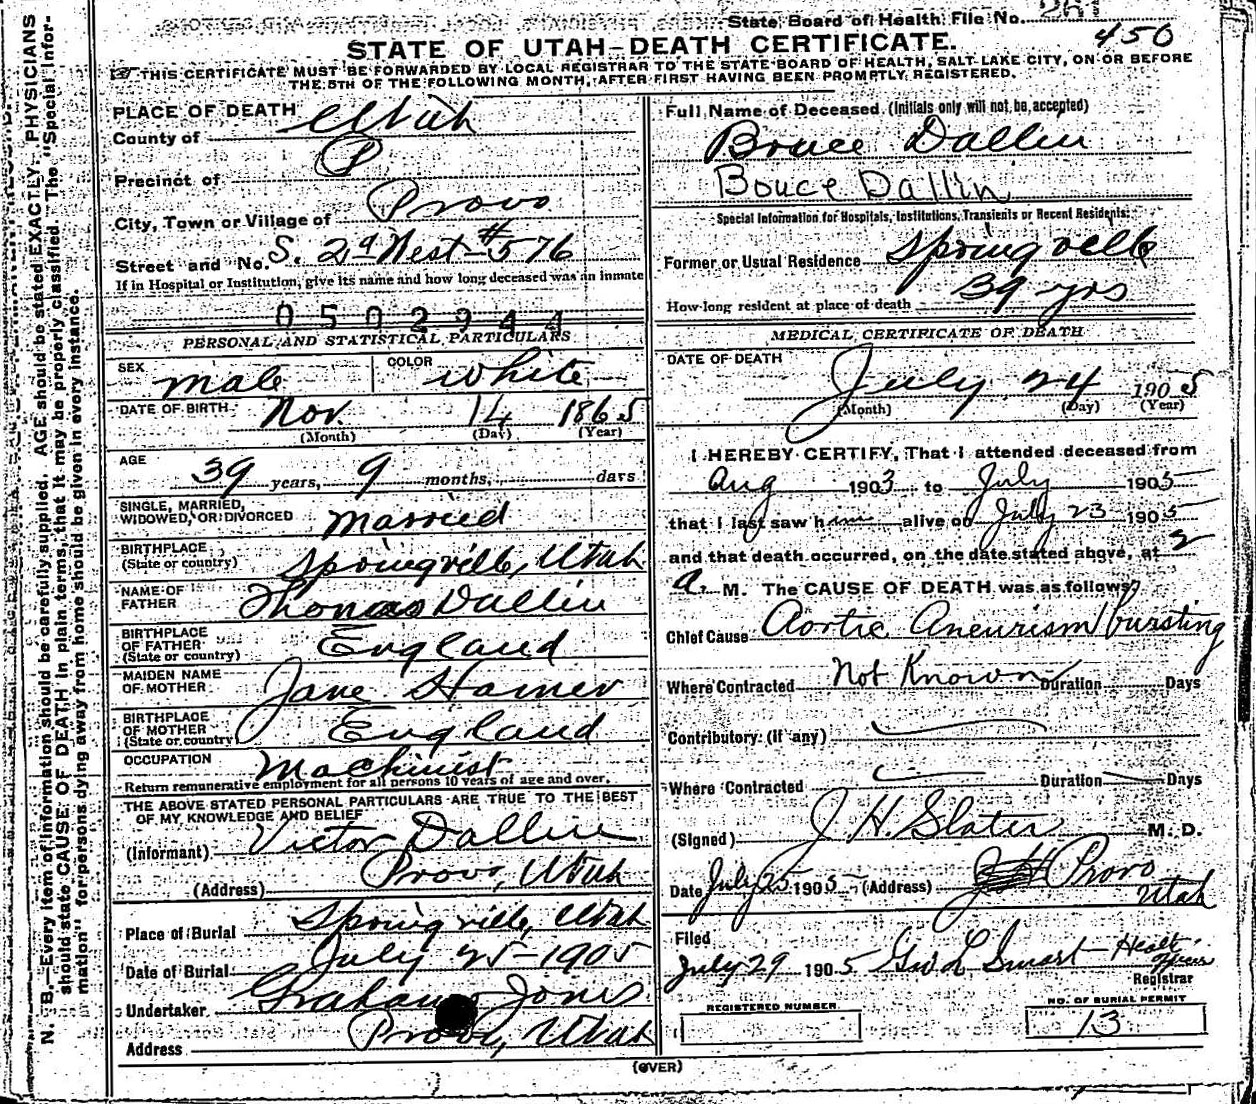 State Board of Health File No. 261
450
STATE OF UTAH—DEATH CERTIFICATE.
THIS CERTIFICATE MUST BE FORWARDED BY LOCAL REGISTRAR TO THE STATE BOARD OF HEALTH, SALT LAKE CITY, ON OR BEFORE
THE 5TH OF THE FOLLOWING MONTH, AFTER FIRST HAVING BEEN PROMPTLY REGISTERED.
N. B.—Every item of information should be carefully supplied. AGE should be stated EXACTLY. PHYSICIANS
should state CAUSE OF DEATH in plain terms, that it may be properly classified. The "Special Infor-
mation" for persons dying away from home should be given in every instance.
PLACE OF DEATH
County of Utah
Precinct of P
City, Town or Village of Provo
Street and No. S. 2d West #576
If in Hospital or Institution, give its name and how long deceased was an inmate
0502944
PERSONAL AND STATISTICAL PARTICULARS
SEX male COLOR white
DATE OF BIRTH Nov. 14 1865
(Month) (Day) (Year)
AGE 39 years, 9 months, days
SINGLE, MARRIED,
WIDOWED, OR DIVORCED married
BIRTHPLACE
(State or country) Springville, Utah
NAME OF
FATHER Thomas Dallin
BIRTHPLACE
OF FATHER
(State or country) England
MAIDEN NAME
OF MOTHER Jane Hamer
BIRTHPLACE
OF MOTHER
(State or country) England
OCCUPATION Machinist
Return remunerative employment for all persons 10 years of age and over.
THE ABOVE STATED PERSONAL PARTICULARS ARE TRUE TO THE BEST
OF MY KNOWLEDGE AND BELIEF
(Informant) Victor Dallin
(Address) Provo, Utah
Place of Burial Springville, Utah
Date of Burial July 25-1905
Undertaker Graham Jones
Address Provo, Utah
Full Name of Deceased (Initials only will not be accepted)
Bruce Dallin
Bouce Dallin
Special Information for Hospitals, Institutions, Transients or Recent Residents:
Former or Usual Residence Springville
How long resident at place of death 39 yrs
MEDICAL CERTIFICATE OF DEATH
DATE OF DEATH
July 24 1905
(Month) (Day) (Year)
I HEREBY CERTIFY, That I attended deceased from
Aug 1903 to July 1905
that I last saw him alive on July 23 1905
and that death occurred, on the date stated above, at 2
a. M. The CAUSE OF DEATH was as follows:
Chief Cause Aortic Aneurism bursting
Where Contracted Not Known Duration Days
Contributory (if any)
Where Contracted Duration Days
(Signed) J. H. Slater M. D.
Date July 25 1905 (Address) Provo
Utah
Filed
July 29 1905 Geo L Smart Health Officer
Registrar
REGISTERED NUMBER
NO. OF BURIAL PERMIT
13
(OVER)